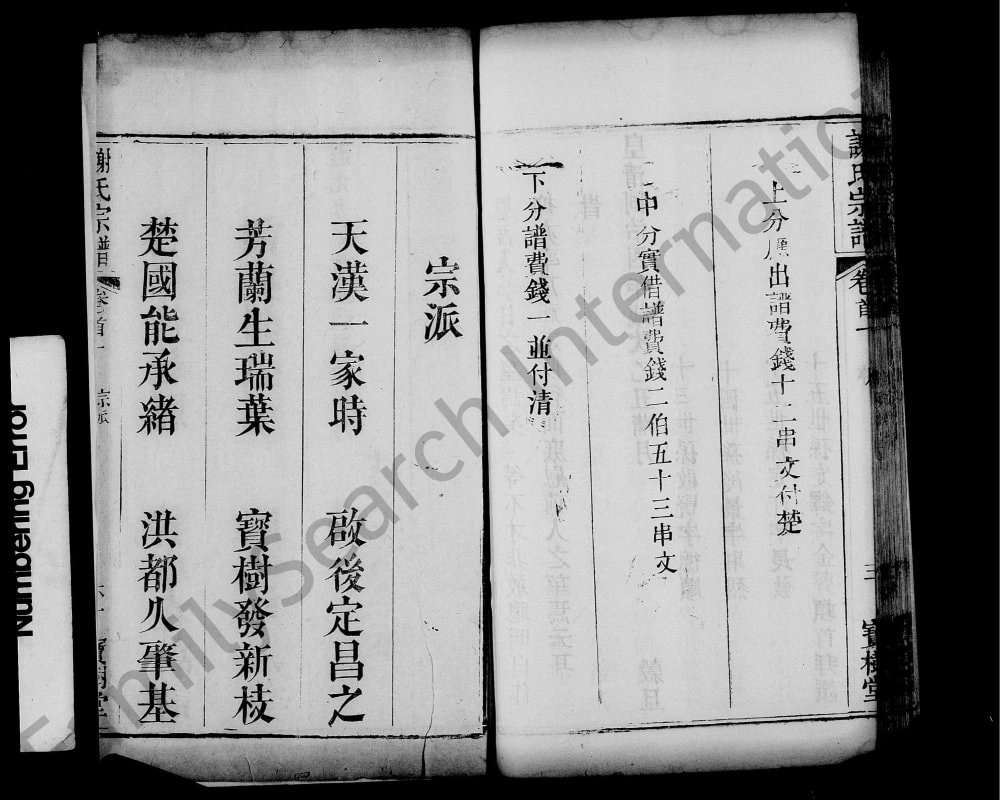 謝氏宗譜
卷首一
三
寶樹堂
上分應出譜費錢十二串文付楚
中分實借譜費錢二伯五十三串文
下分譜費錢一並付清
宗派
天漢一家時 啟後定昌之
芳蘭生瑞葉 寶樹發新枝
楚國能承緒 洪都久肇基
謝氏宗譜
卷首一
宗派
寶樹堂
Numbering Error
FamilySearch International